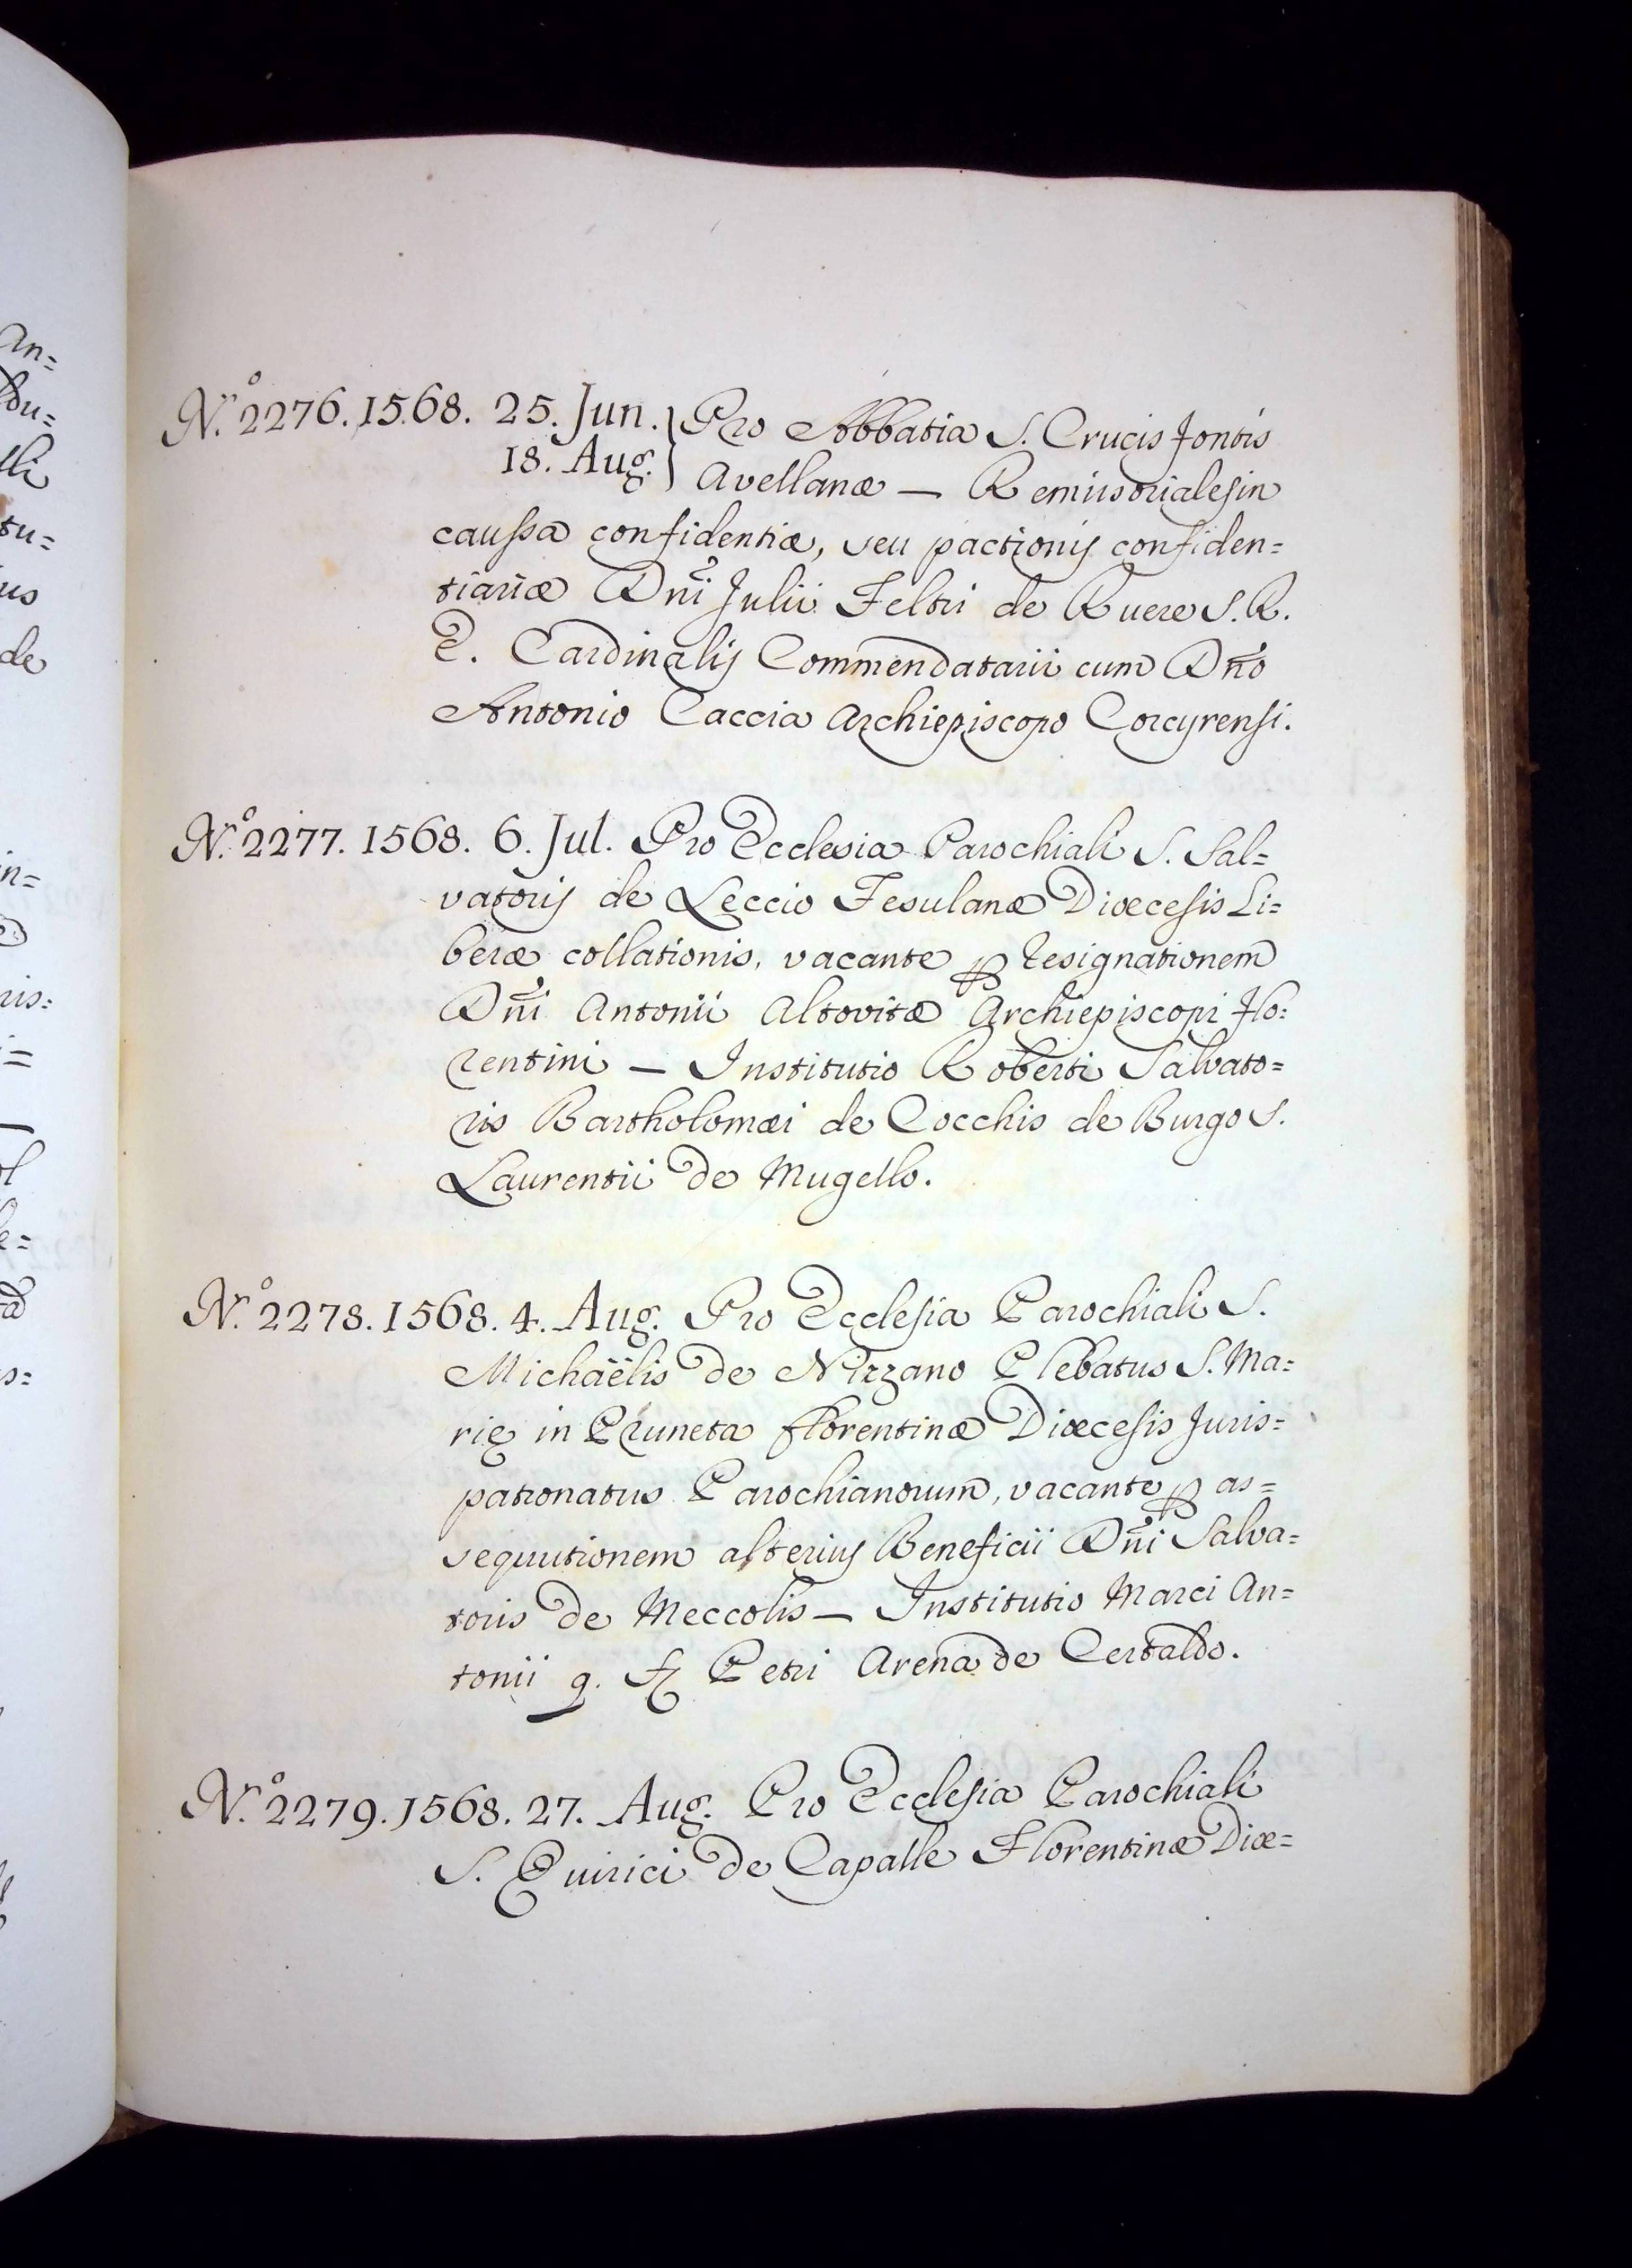 An=
tu=
us
de
in=
ris=
N.º 2276. 1568. 25. Jun. } Pro Abbatia S. Crucis Fontis
18. Aug. } Avellanæ — Remissoriales in
caussa confidentiæ, seu pactionis confiden=
tiariæ Dñi Julii Feltri de Ruere S. R.
E. Cardinalis Commendatarii cum Dño
Antonio Caccia Archiepiscopo Corcyrensi.
N.º 2277. 1568. 6. Jul. Pro Ecclesia Parochiali S. Sal=
vatoris de Leccio Fesulanæ Diœcesis Li=
beræ collationis, vacante ꝑ resignationem
Dñi Antonii Altovitæ Archiepiscopi Flo=
rentini — Institutio Roberti Salvato=
ris Bartholomæi de Cocchis de Burgo S.
Laurentii de Mugello.
N.º 2278. 1568. 4. Aug. Pro Ecclesia Parochiali S.
Michaëlis de Nizzano Plebatus S. Ma=
rię in Pruneta Florentinæ Diœcesis Juris=
patronatus Parochianorum, vacante ꝑ as=
sequutionem alterius Beneficii Dñi Salva=
toris de Meccolis — Institutio Marci An=
tonii q. Petri Arena de Certaldo.
N.º 2279. 1568. 27. Aug. Pro Ecclesia Parochiali
S. Quirici de Capalle Florentinæ Diœ=